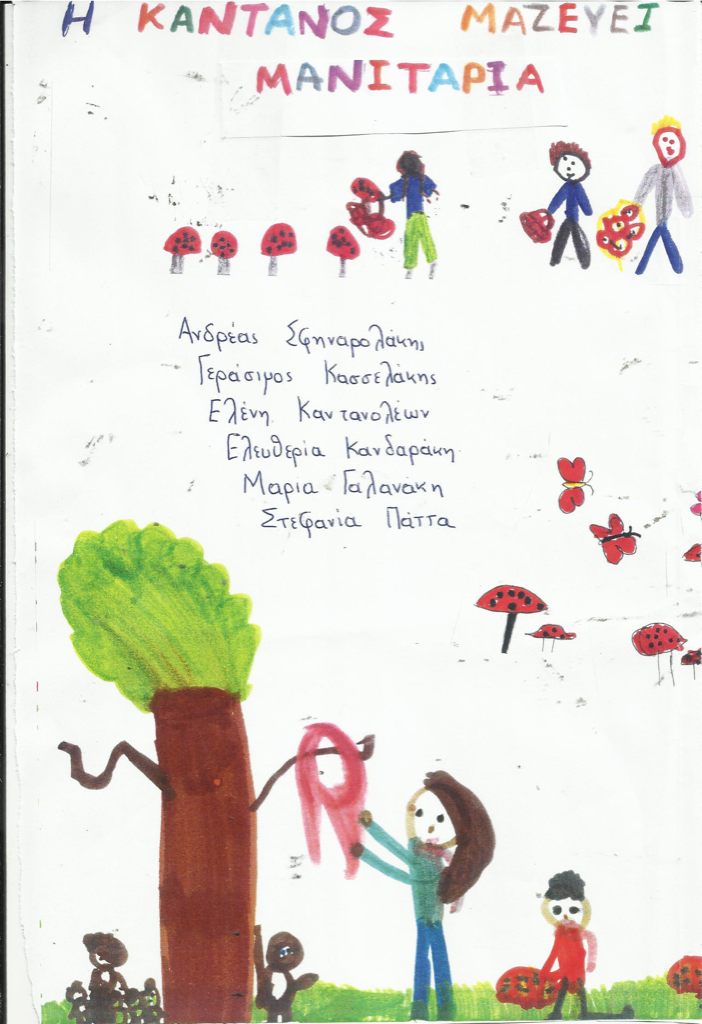 Η ΚΑΝΤΑΝΟΣ ΜΑΖΕΥΕΙ
ΜΑΝΙΤΑΡΙΑ
Ανδρέας Σφηναρολάκης
Γεράσιμος Κασσελάκης
Ελένη Καντανολέων
Ελευθερία Κανδαράκη
Μαρια Γαλανακη
Στεφανία Πάττα
R